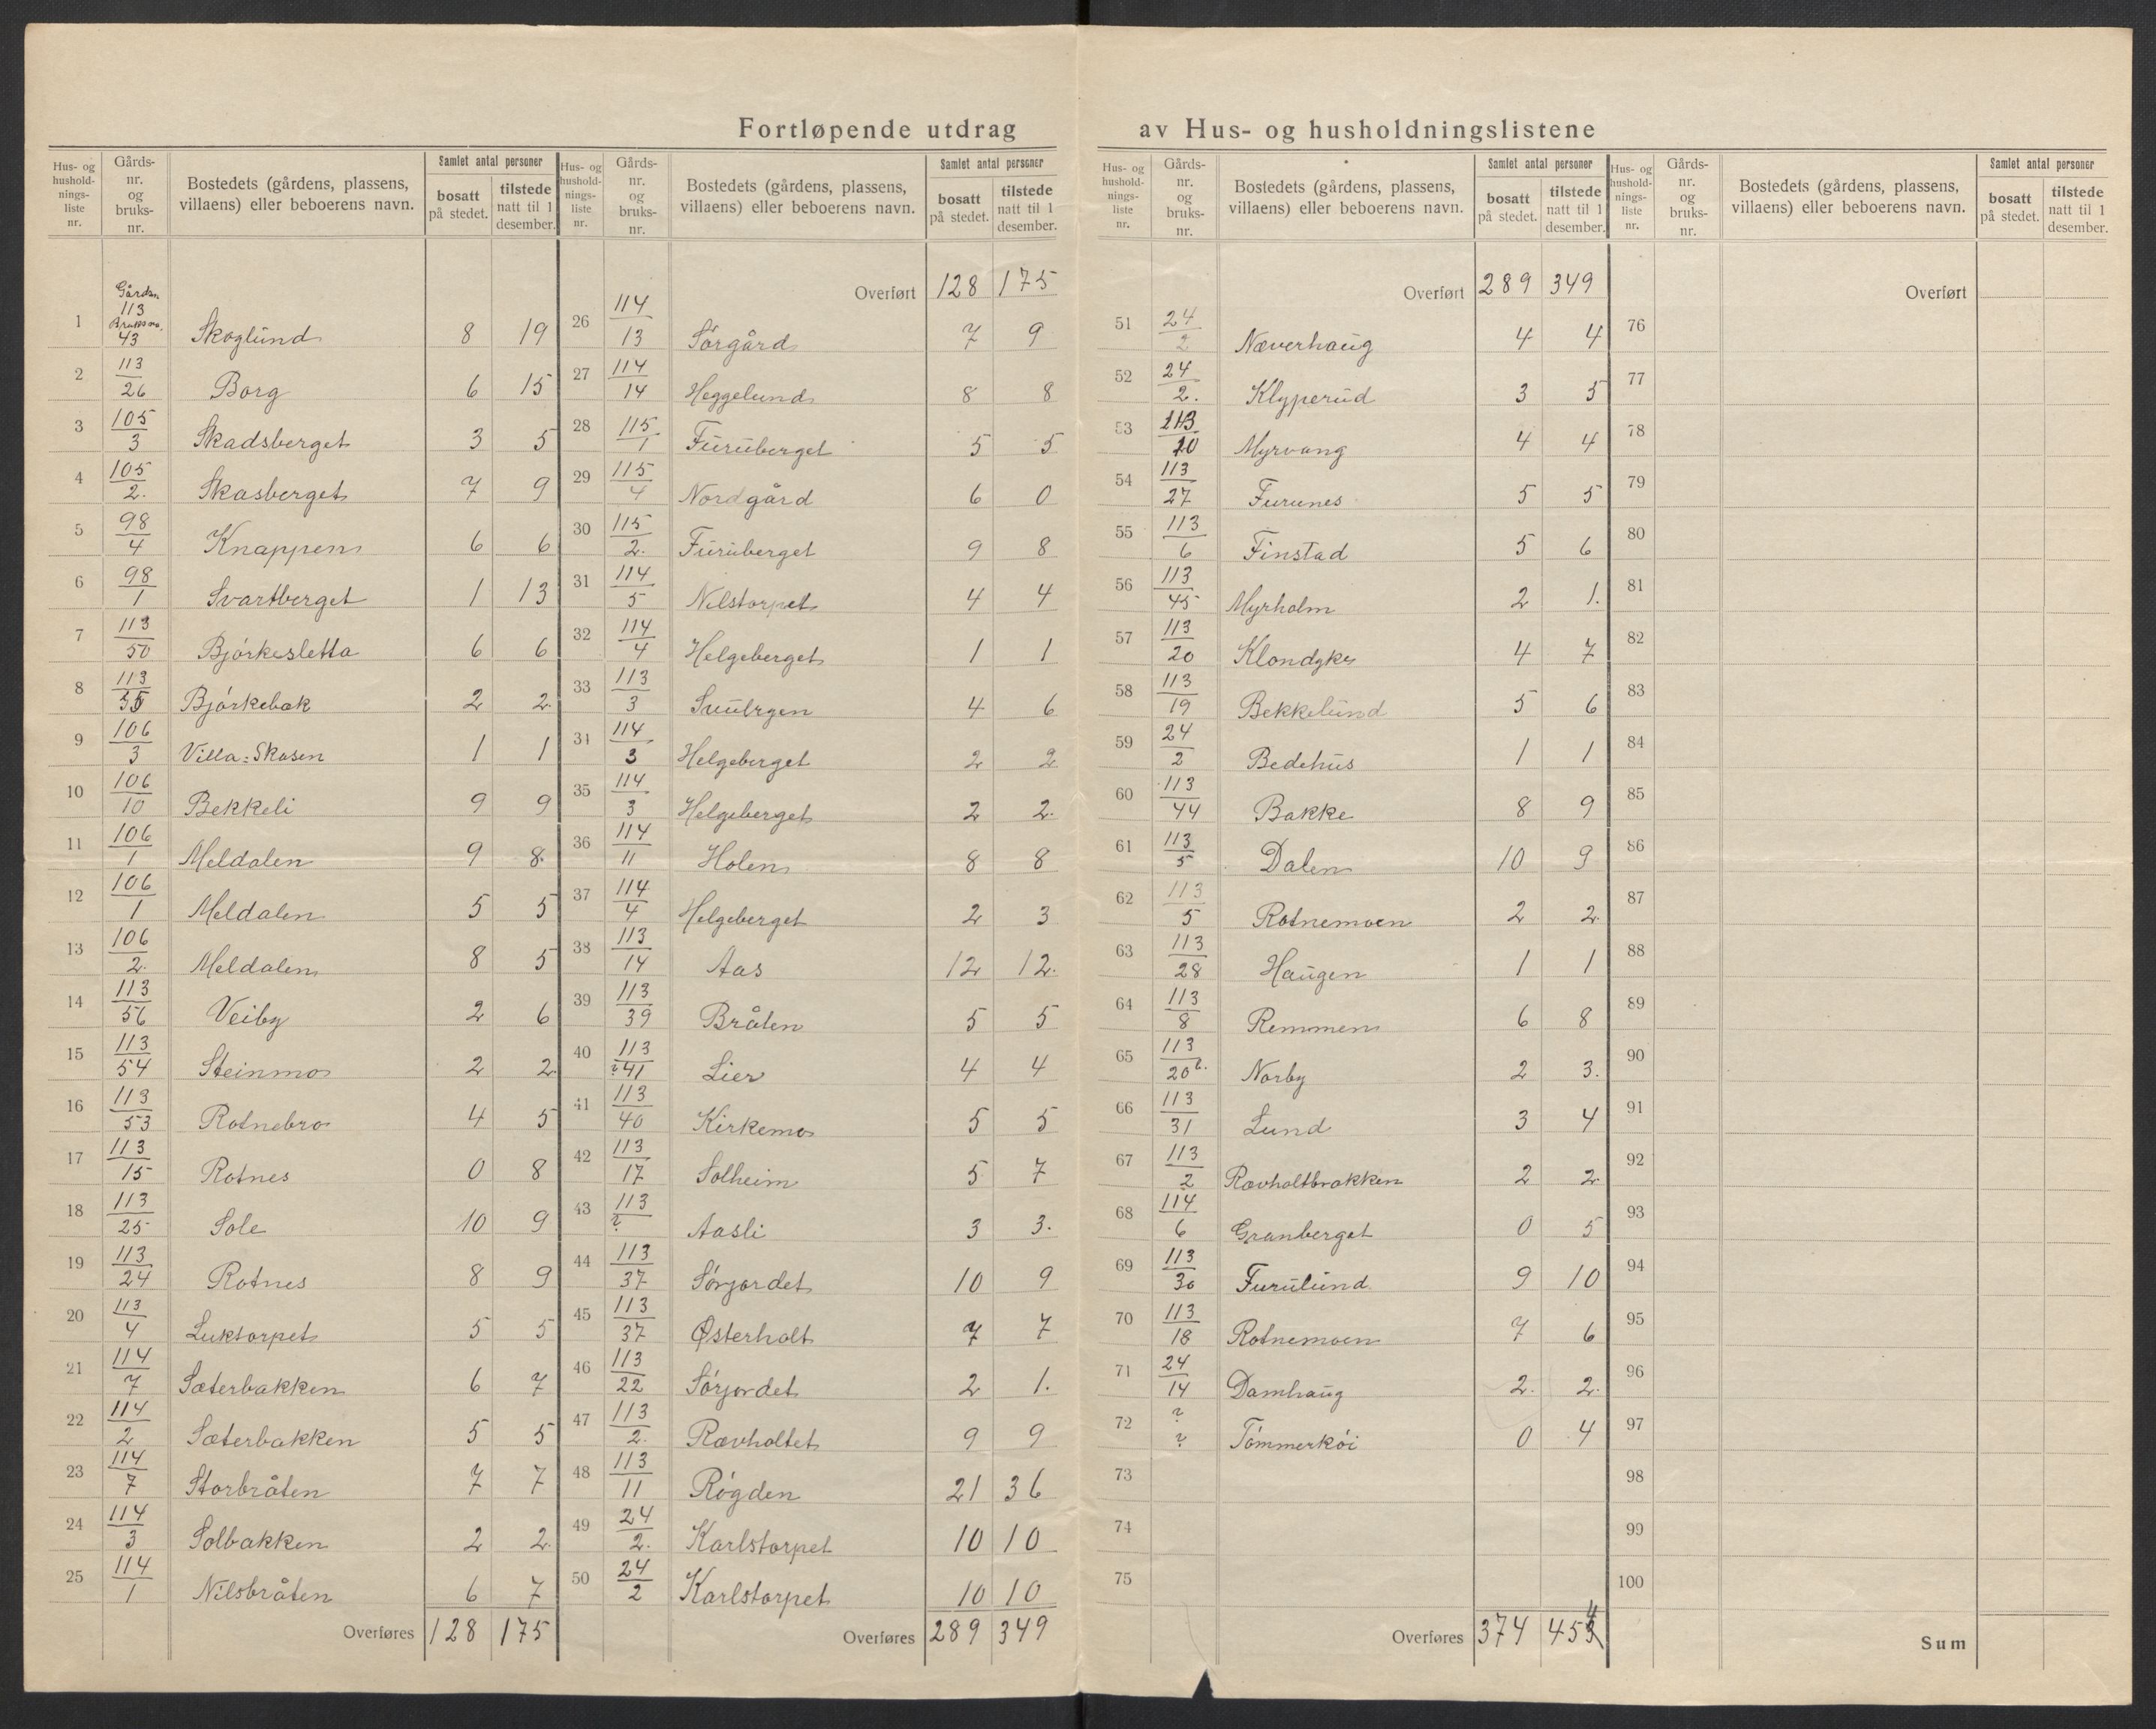 Fortløpende utdrag av Hus- og husholdningslistene
Hus- og husholdnings-liste nr. | Gårds-nr. og bruks-nr. | Bostedets (gårdens, plassens, villaens) eller beboerens navn. | Samlet antal personer | bosatt på stedet. | tilstede natt til 1 desember.
1 Gårdsn. 113 Bruksno. 43 Skoglund 8 19
2 113/26 Borg 6 15
3 105/3 Skadsberget 3 5
4 105/2. Skasberget 7 9
5 98/4 Knappen 6 6
6 98/1 Svartberget 1 13
7 113/50 Bjørkesletta 6 6
8 113/35 Bjørkebak 2 2
9 106/3 Villa: Skasen 1 1
10 106/10 Bekkeli 9 9
11 106/1 Meldalen 9 8
12 106/1 Meldalen 5 5
13 106/2. Meldalen 8 5
14 113/56 Veiby 2 6
15 113/54 Steinmo 2 2
16 113/53 Rotnebro 4 5
17 113/15 Rotnes 0 8
18 113/25 Sole 10 9
19 113/24 Rotnes 8 9
20 113/4 Luktorpet 5 5
21 114/7 Sæterbakken 6 7
22 114/2 Sæterbakken 5 5
23 114/7 Storbråten 7 7
24 114/3 Solbakken 2 2
25 114/1 Nilsbråten 6 7
Overføres 128 175
Hus- og husholdnings-liste nr. | Gårds-nr. og bruks-nr. | Bostedets (gårdens, plassens, villaens) eller beboerens navn. | Samlet antal personer | bosatt på stedet. | tilstede natt til 1 desember.
Overført 128 175
26 114/13 Sørgård 7 9
27 114/14 Heggelund 8 8
28 115/1 Furuberget 5 5
29 115/4 Nordgård 6 0
30 115/2. Furuberget 9 8
31 114/5 Nilstorpet 4 4
32 114/4 Helgeberget 1 1
33 113/3 4 6
34 114/3 Helgeberget 2 2
35 114/3 Helgeberget 2 2.
36 114/11 Holen 8 8
37 114/4 Helgeberget 2 3
38 113/14 Aas 12 12.
39 113/39 Bråten 5 5
40 113/?41 Lier 4 4
41 113/40 Kirkemo 5 5
42 113/17 Solheim 5 7
43 113/? Aasli 3 3.
44 113/37 Sørjordet 10 9
45 113/37 Østerholt 7 7
46 113/22 Sørjordet 2 1.
47 113/2. Rævholtet 9 9
48 113/11 Røgden 21 36
49 24/2. Karlstorpet 10 10
50 24/2 Karlstorpet 10 10
Overføres 289 349
Hus- og husholdnings-liste nr. | Gårds-nr. og bruks-nr. | Bostedets (gårdens, plassens, villaens) eller beboerens navn. | Samlet antal personer | bosatt på stedet. | tilstede natt til 1 desember.
Overført 289 349
51 24/2 Næverhaug 4 4
52 24/2. Klyperud 3 5
53 113/20 Myrvang 4 4
54 113/27 Furunes 5 5
55 113/6 Finstad 5 6
56 113/45 Myrholm 2 1.
57 113/20 Klondyke 4 7
58 113/19 Bekkelund 5 6
59 24/2 Bedehus 1 1
60 113/44 Bakke 8 9
61 113/5 Dalen 10 9
62 113/5 Rotnemoen 2 2.
63 113/28 Haugen 1 1
64 113/8 Remmen 6 8
65 113/20 Norby 2 3.
66 113/31 Lund 3 4
67 113/2 Rævholtbrakken 2 2
68 114/6 Granberget 0 5
69 113/30 Furulund 9 10
70 113/18 Rotnemoen 7 6
71 24/14 Damhaug 2. 2.
72 ?/? Tømmerkøi 0 4
73
74
75
Overføres 374 454
Hus- og husholdnings-liste nr. | Gårds-nr. og bruks-nr. | Bostedets (gårdens, plassens, villaens) eller beboerens navn. | Samlet antal personer | bosatt på stedet. | tilstede natt til 1 desember.
Overført
76
77
78
79
80
81
82
83
84
85
86
87
88
89
90
91
92
93
94
95
96
97
98
99
100
Sum